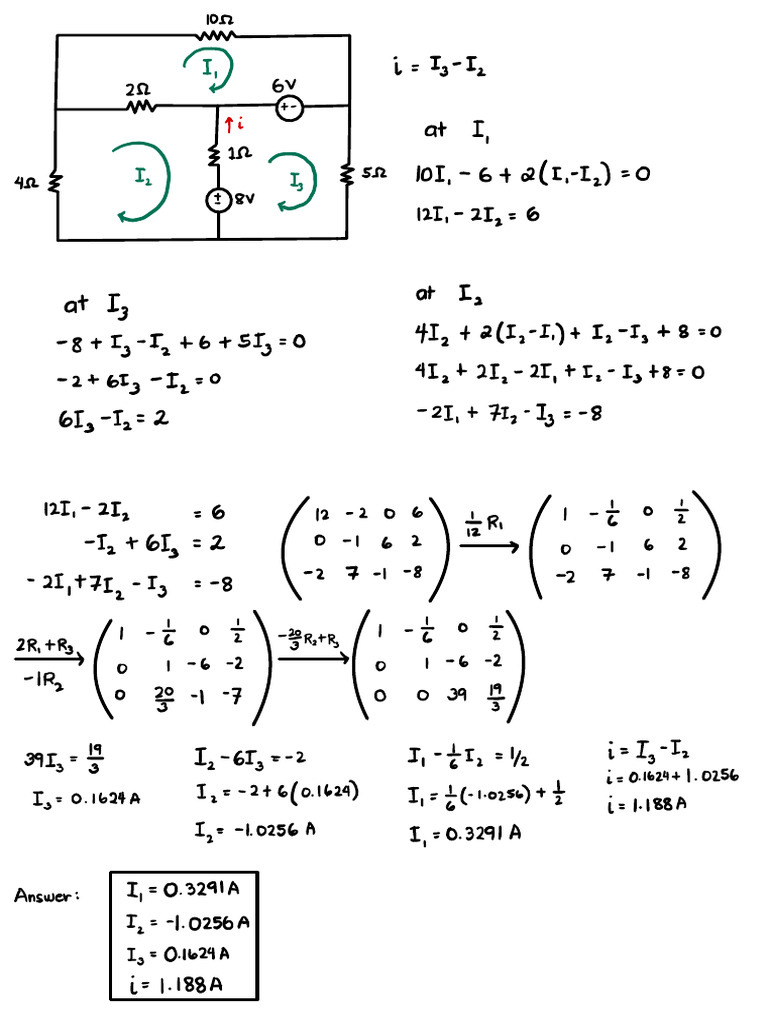 10Ω
I₁
2Ω
6V
+-
i
1Ω
4Ω
I₂
I₃
5Ω
±
8V
i = I₃-I₂
at I₁
10I₁ - 6 + 2(I₁-I₂) = 0
12I₁ - 2I₂ = 6
at I₃
-8 + I₃ - I₂ + 6 + 5I₃ = 0
-2 + 6I₃ - I₂ = 0
6I₃ - I₂ = 2
at I₂
4I₂ + 2(I₂-I₁) + I₂-I₃ + 8 = 0
4I₂ + 2I₂ - 2I₁ + I₂ - I₃ + 8 = 0
-2I₁ + 7I₂ - I₃ = -8
12I₁ - 2I₂ = 6
-I₂ + 6I₃ = 2
-2I₁ + 7I₂ - I₃ = -8
12 -2 0 6
0 -1 6 2
-2 7 -1 -8
1/12 R₁
1 -1/6 0 1/2
0 -1 6 2
-2 7 -1 -8
2R₁+R₃
-1R₂
1 -1/6 0 1/2
0 1 -6 -2
0 20/3 -1 -7
-20/3 R₂+R₃
1 -1/6 0 1/2
0 1 -6 -2
0 0 39 19/3
39I₃ = 19/3
I₃ = 0.1624A
I₂ - 6I₃ = -2
I₂ = -2 + 6(0.1624)
I₂ = -1.0256 A
I₁ - 1/6 I₂ = 1/2
I₁ = 1/6(-1.0256) + 1/2
I₁ = 0.3291A
i = I₃-I₂
i = 0.1624 + 1.0256
i = 1.188A
Answer:
I₁ = 0.3291A
I₂ = -1.0256A
I₃ = 0.1624A
i = 1.188A